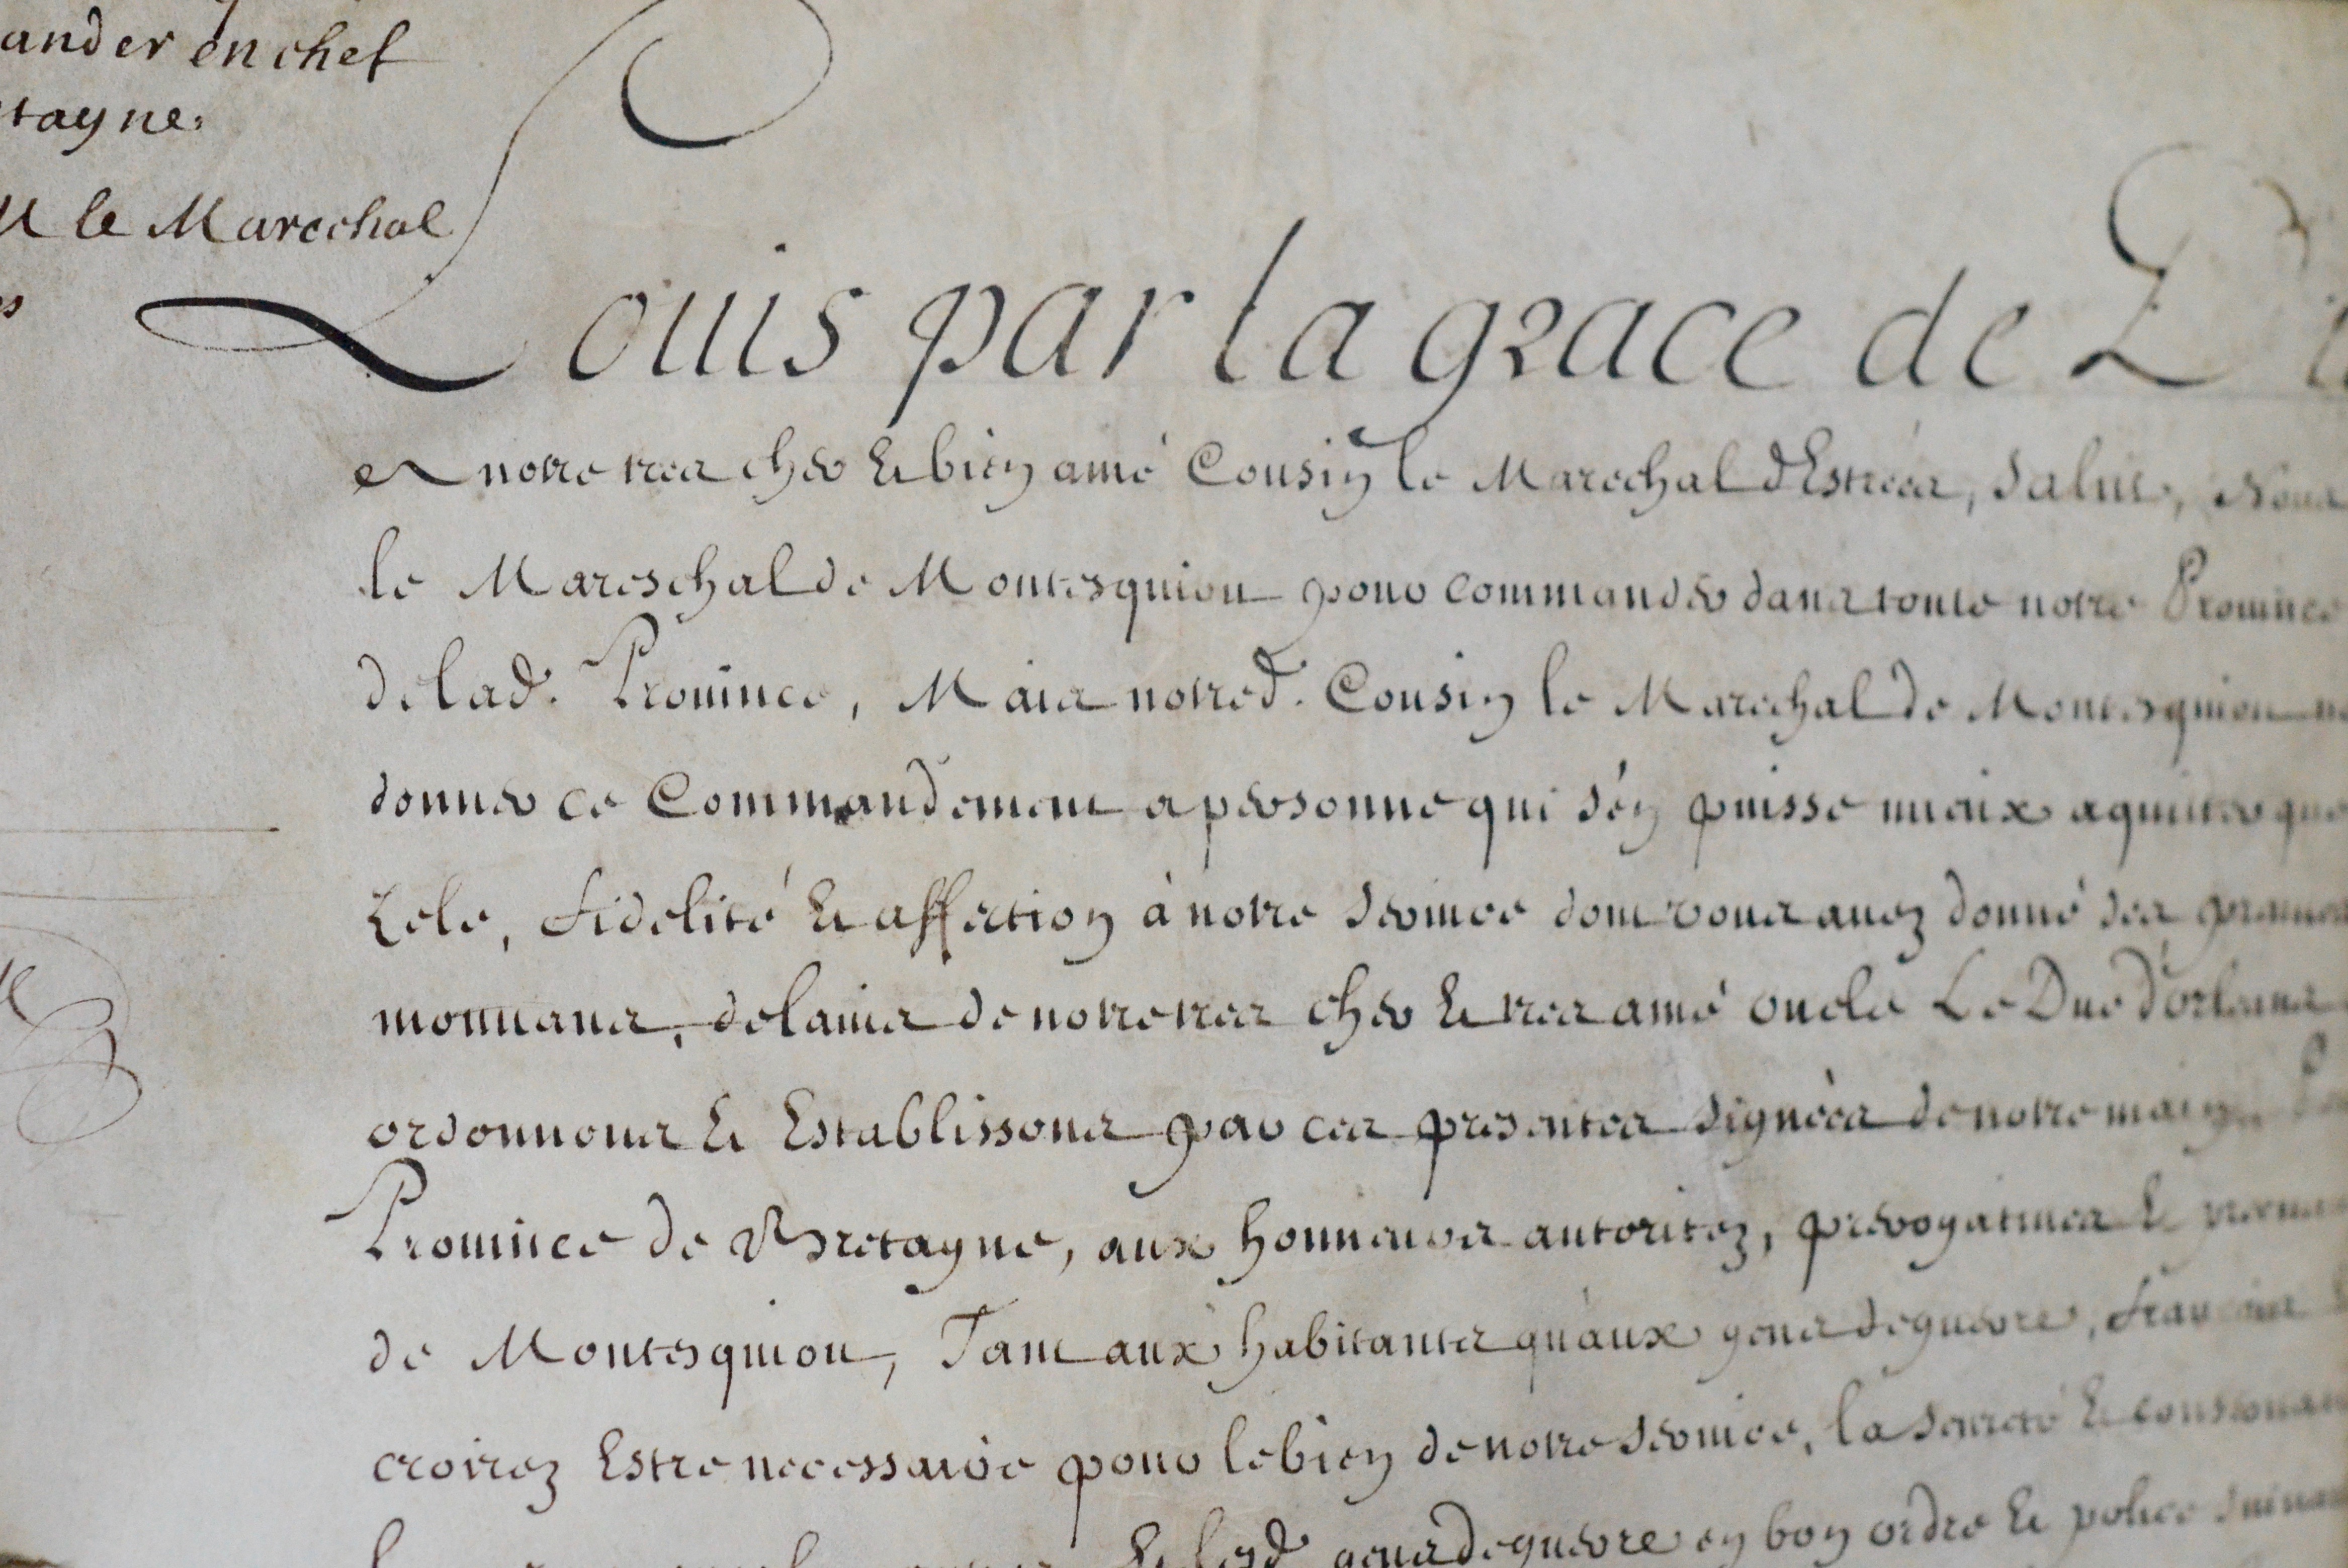 ander en chef
tagne.
M le Marechal
Louis par la grace de Di
et notre tres cher et bien amé Cousin le Marechal d'Estrées, Salut, Nous
le Mareschal de Montesquiou pour commander dans toute notre Province
de lad. Province, Mais notred. Cousin le Marechal de Montesquiou
donner ce Commandement a personne qui s'en puisse mieux aquiter que
Zele, fidelité et affection à notre service dont vous avez donné des preuves
mouuans, de l'auis de notre tres cher et tres amé oncle Le Duc d'orleans
ordonnons et Establissons par ces presentes signées de notre main
Prouince de Bretagne, aux honneurs autoritez, prerogatiues et
de Montesquiou, Tant aux habitants qu'aux gens de guerre, françois
croirez Estre necessaire pour le bien de notre seruice, la seureté et
et lesd gens de guerre en bon ordre et police suiuant